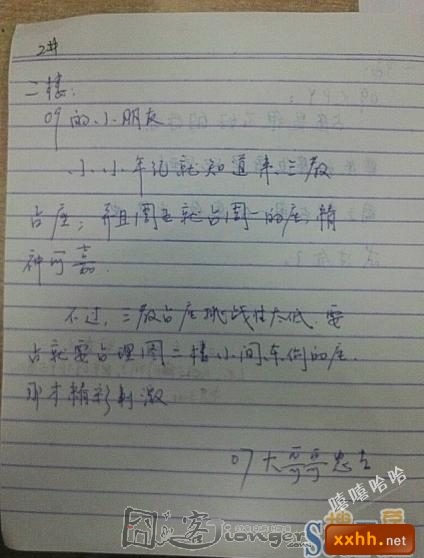 2#
二楼:
09的小朋友
小小年纪就知道来三教
占座;并且周五就占周一的座,精
神可嘉.
不过,三教占座挑战性太低.要
占就要占理图二楼小间,东侧的座.
那才精彩刺激
07大哥哥忠上
嘻嘻哈哈
囧客
Jionger.com
xxhh.net